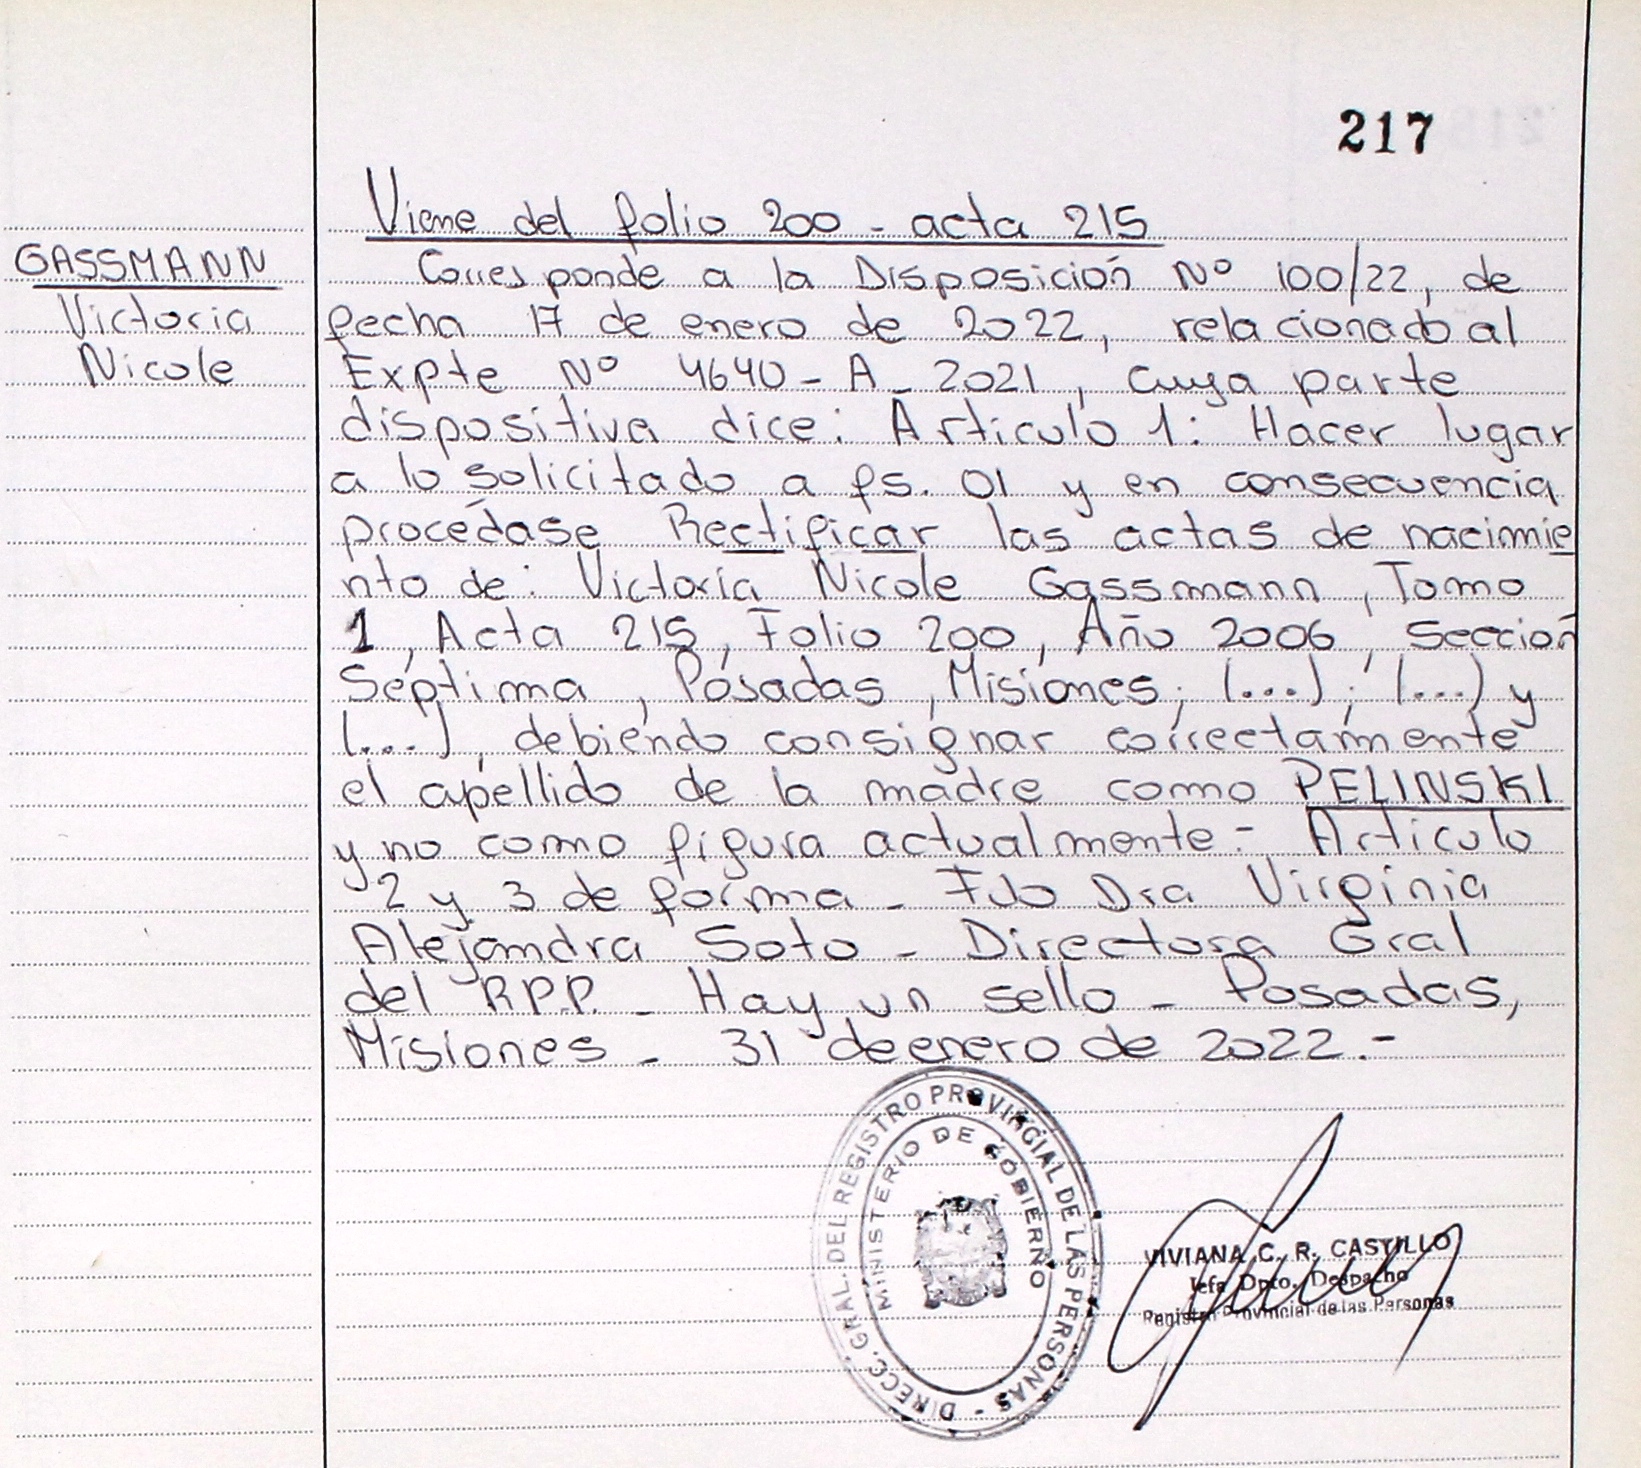 217
Viene del folio 200 - acta 215
GASSMANN
Victoria
Nicole
Corresponde a la Disposición Nº 100/22, de
fecha 17 de enero de 2022, relacionado al
Expte Nº 4640-A-2021, cuya parte
dispositiva dice: Articulo 1: Hacer lugar
a lo solicitado a fs. 01 y en consecuencia
procédase Rectificar las actas de nacimie
nto de: Victoria Nicole Gassmann, Tomo
1, Acta 215, Folio 200, Año 2006, Sección
Séptima, Posadas, Misiones; (...); (...) y
(...), debiendo consignar correctamente
el apellido de la madre como PELINSKI
y no como figura actualmente.- Articulo
2 y 3 de forma - Fdo Dra Virginia
Alejandra Soto - Directora Gral
del R.P.P. - Hay un sello - Posadas,
Misiones - 31 de enero de 2022.-
DIRECC. GRAL. DEL REGISTRO PROVINCIAL DE LAS PERSONAS -
MINISTERIO DE GOBIERNO
VIVIANA C. R. CASTILLO
Jefa Dpto. Despacho
Registro Provincial de las Personas